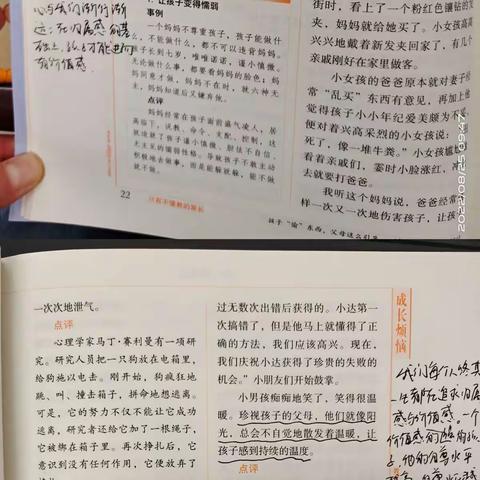 1. 让孩子变得懦弱
事例
一个妈妈不尊重孩子，孩子能做什
么，不能做什么，都不可以违背妈妈。
孩子长到七岁，唯唯诺诺，谨小慎微。
无论做什么事，都要看妈妈的脸色；妈
妈同意才做，妈妈不在时，就六神无
主，妈妈知道后又嫌弃他。
点评
妈妈经常在孩子面前盛气凌人，居
高临下，说教、命令、支配、控制，这
就造就了孩子谨小慎微、胆怯不自信、
无主见的懦弱性格。导致孩子不敢主动
积极地去做事，而是能躲就躲，能不做
就不做。
22
只有不懂教的家长
街时，看上了一个粉红色镶钻的
夹，妈妈就给她买了。小女孩高高
兴兴地戴着新发夹回家了，有几个
亲戚刚好在家里做客。
小女孩的爸爸原本就对妻子经
常“乱买”东西有意见，再加上他
觉得孩子小小年纪爱美颇为不
便对着兴高采烈的小女孩说：
死了，像一堆牛粪。”小女孩尴
看着亲戚们，霎时小脸涨红，冲
去就要打爸爸。
我听这个妈妈说，爸爸经常
样一次又一次地伤害孩子，让孩
孩子“偷”东西，父母这么引导
2022/08/25 09:47
一次次地泄气。
点评
心理学家马丁·赛利曼有一项研
究。研究人员把一只狗放在电箱里，
给狗施以电击。刚开始，狗疯狂地
跳、叫、撞击箱子，拼命地想逃离。
可是，它的努力不仅不能让它成功
逃离，研究者还给它加了一根绳子，
它被绑在箱子里。再次挣扎后，它
意识到没有任何作用，它便放弃了
过无数次出错后获得的。小达第一
次搞错了，但是他马上就懂得了正
确的方法，我们应该高兴。现在，
我们庆祝小达获得了珍贵的失败的
机会。”小朋友们开始鼓掌。
小男孩痴痴地笑了，笑得很温
暖。珍视孩子的父母，他们就像阳
光，总会不自觉地散发着温暖，让
孩子感到持续的温度。
点评
成长烦恼
我们每个人终其
一生都在追求归属
感与价值感。一个